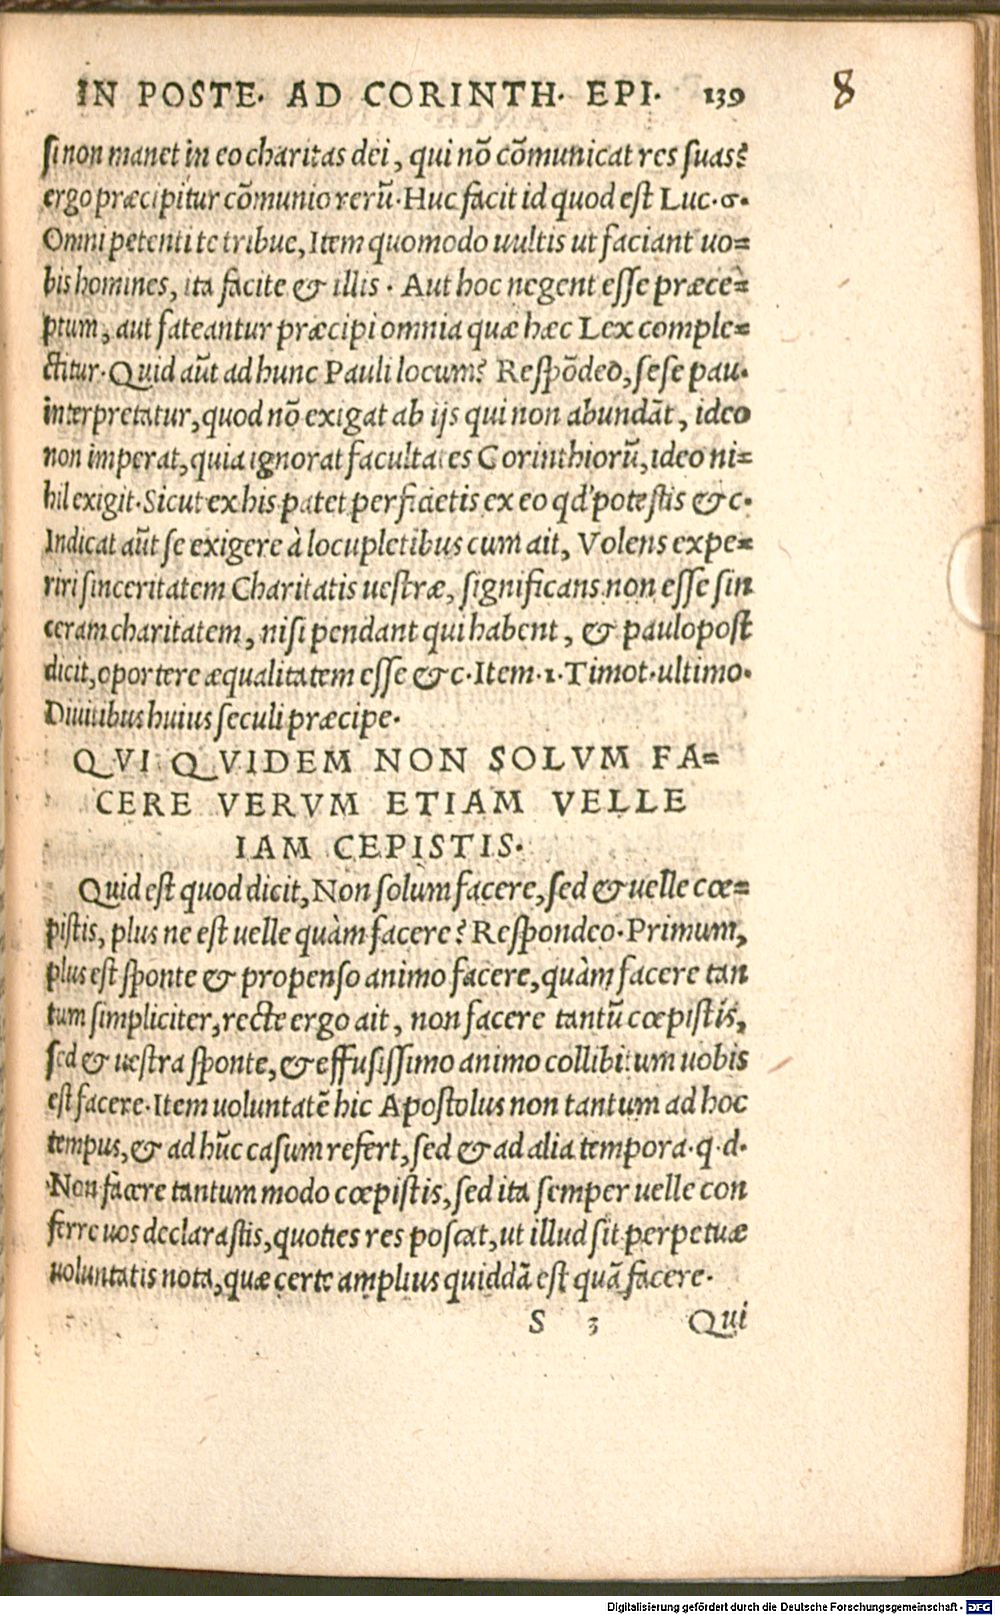 IN POSTE. AD CORINTH. EPI. 139
8
si non manet in eo charitas dei, qui nõ cõmunicat res suas?
ergo præcipitur cõmunio rerũ. Huc facit id quod est Luc. 6.
Omni petenti te tribue, Item quomodo uultis ut faciant uo=
bis homines, ita facite & illis. Aut hoc negent esse præce=
ptum, aut fateantur præcipi omnia quæ hæc Lex comple=
ctitur. Quid aũt ad hunc Pauli locum? Respõdeo, sese pau.
interpretatur, quod nõ exigat ab ijs qui non abundãt, ideo
non imperat, quia ignorat facultates Corinthiorũ, ideo ni=
hil exigit. Sicut ex his patet perficietis ex eo qd' potestis & c.
Indicat aũt se exigere à locupletibus cum ait, Volens expe=
riri sinceritatem Charitatis uestræ, significans non esse sin
ceram charitatem, nisi pendant qui habent, & paulopost
dicit, oportere æqualitatem esse & c. Item. 1. Timot. ultimo.
Diuitibus huius seculi præcipe.
QVI QVIDEM NON SOLVM FA=
CERE VERVM ETIAM VELLE
IAM CEPISTIS.
Quid est quod dicit, Non solum facere, sed & uelle cœ=
pistis, plus ne est uelle quàm facere? Respondeo. Primum,
plus est sponte & propenso animo facere, quàm facere tan
tum simpliciter, recte ergo ait, non facere tantũ cœpistis,
sed & uestra sponte, & effusissimo animo collibitum uobis
est facere. Item uoluntatẽ hic Apostolus non tantum ad hoc
tempus, & ad hũc casum refert, sed & ad alia tempora. q. d.
Non facere tantum modo cœpistis, sed ita semper uelle con
ferre uos declarastis, quoties res poscat, ut illud sit perpetuæ
uoluntatis nota, quæ certe amplius quiddã est quã facere.
S 3 Qui
Digitalisierung gefördert durch die Deutsche Forschungsgemeinschaft - DFG